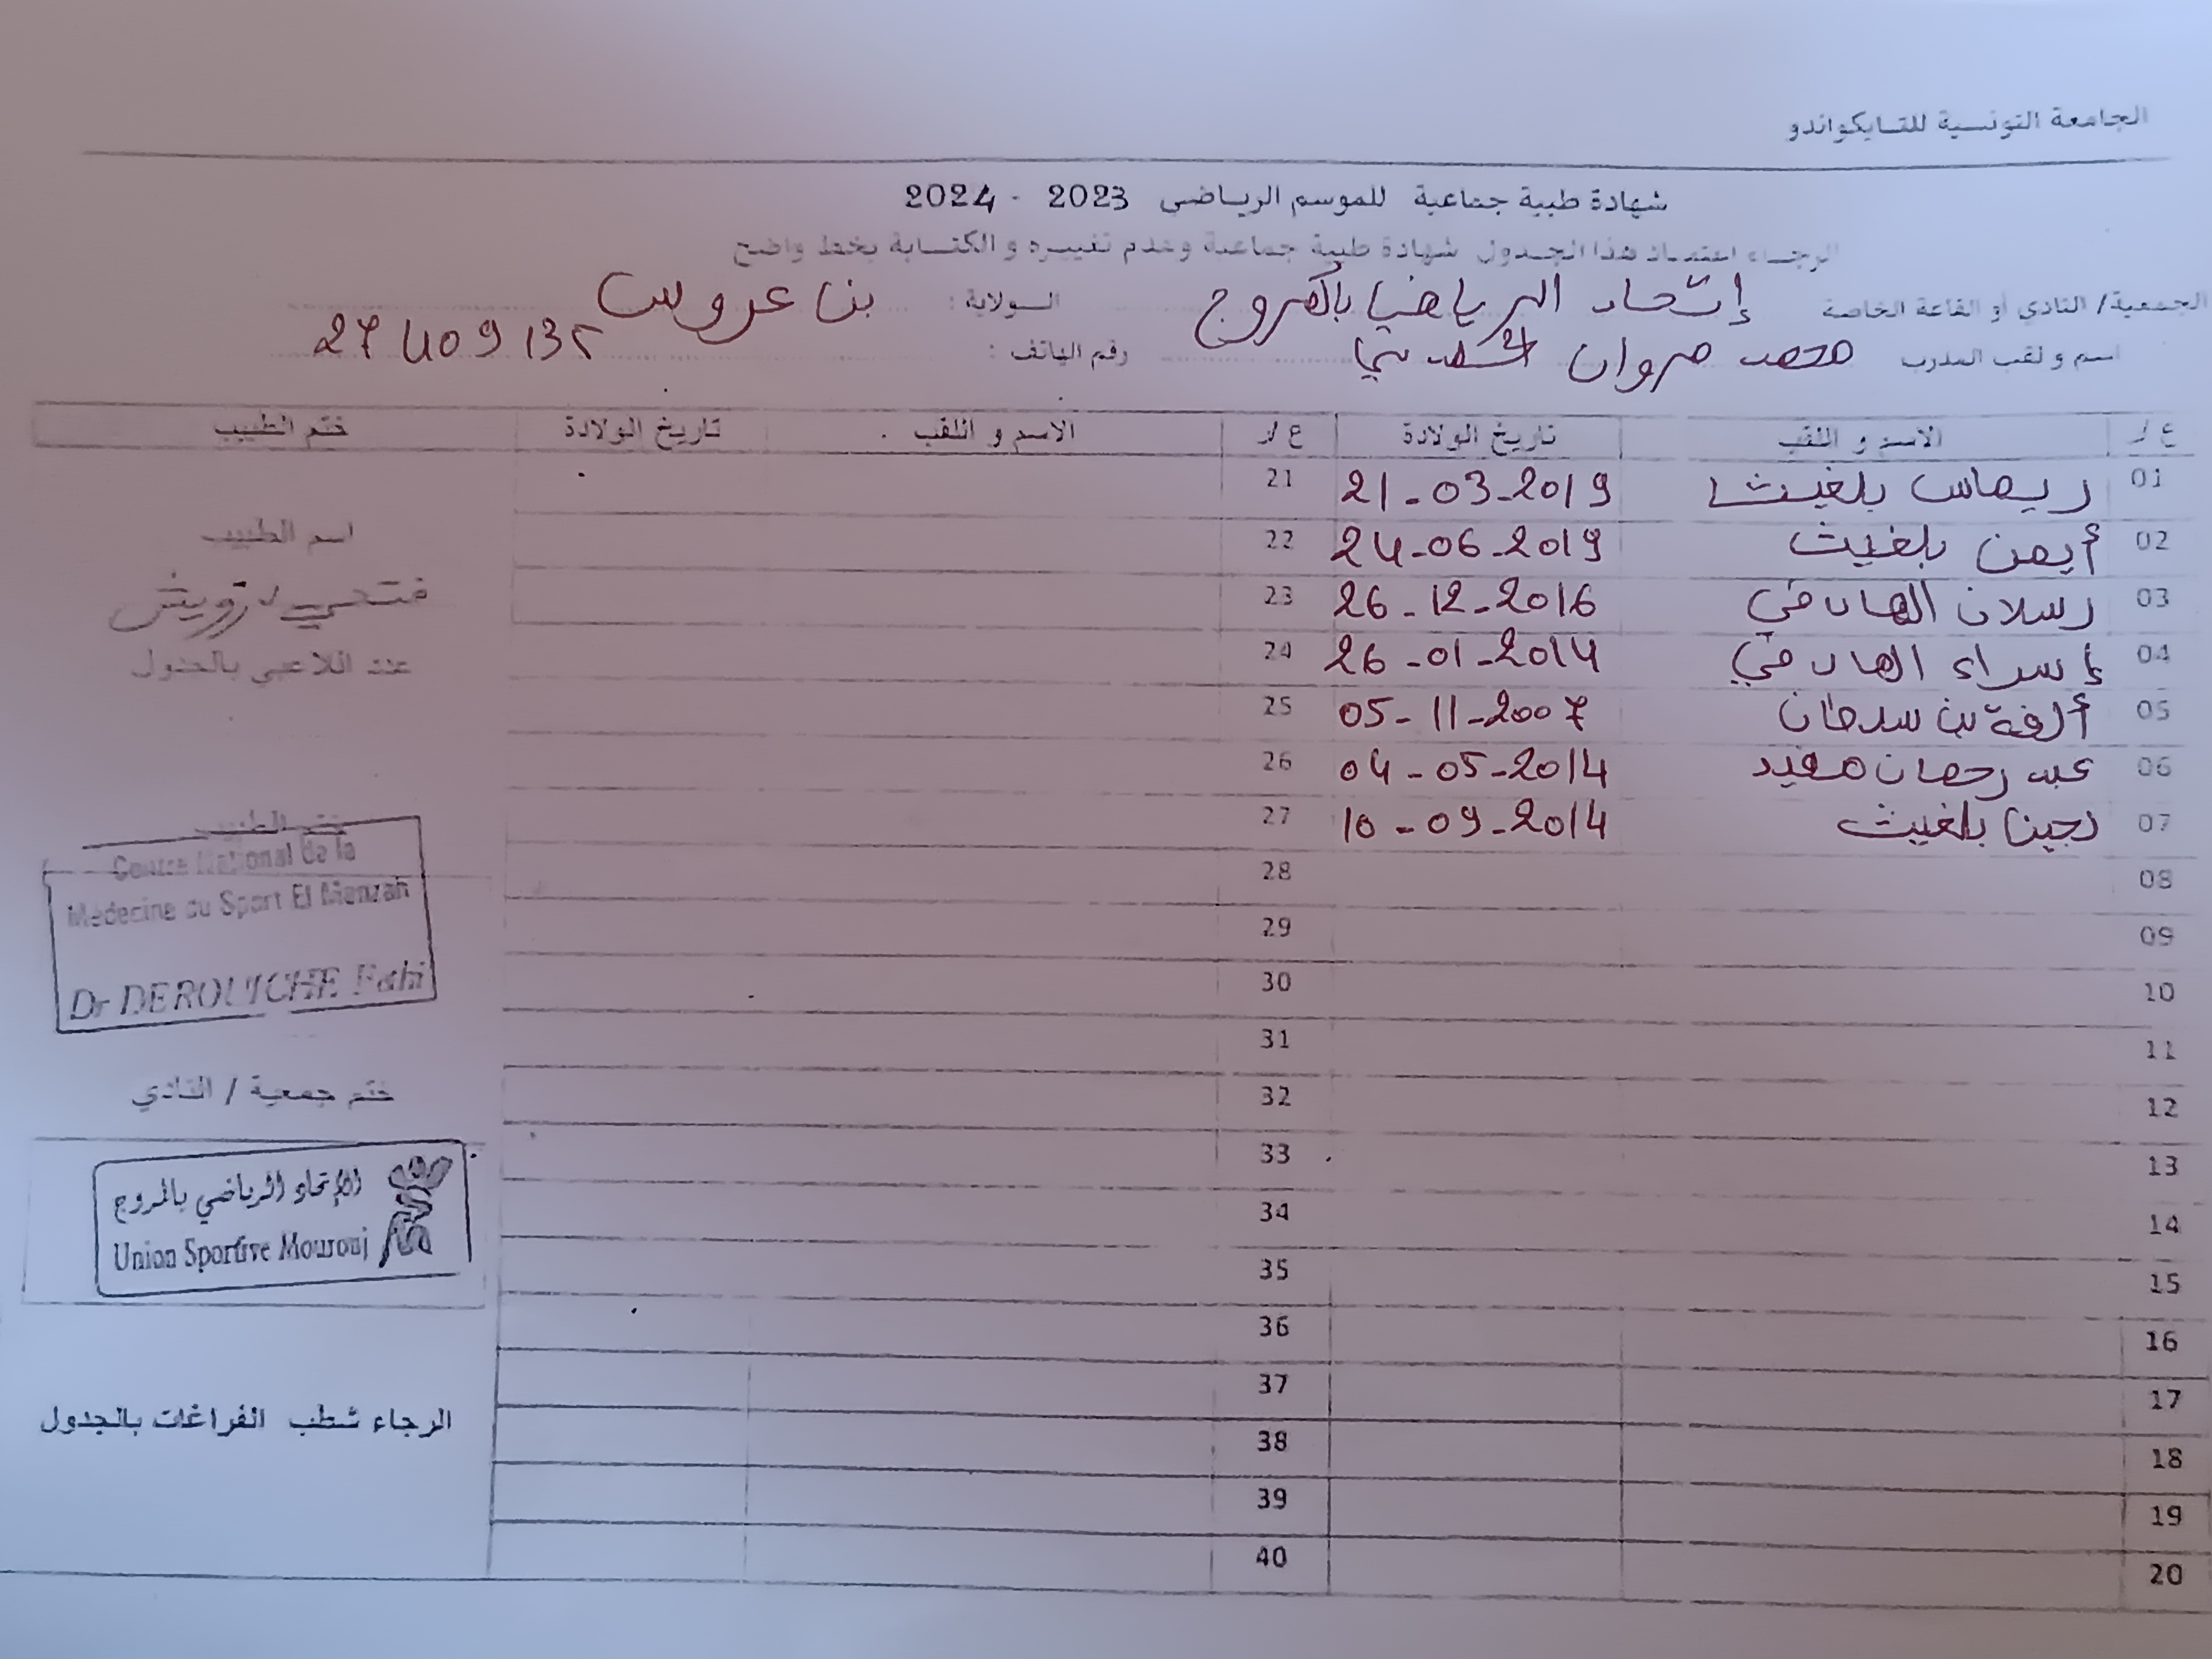 الجامعة التونسية للتايكواندو
شهادة طبية جماعية للموسم الرياضي 2023 - 2024
الرجاء اعتماد هذا الجدول شهادة طبية جماعية وعدم تغييره و الكتابة بخط واضح
الجمعية/ النادي أو القاعة الخاصة إتحاد الرياضي بالمروج الولاية : بن عروس
اسم و لقب المدرب محمد مروان رقم الهاتف : 27409135
ع/ الاسم و اللقب تاريخ الولادة ع/ الاسم و اللقب تاريخ الولادة ختم الطبيب
01 ريماس بلغيث 21-03-2019 21
02 أيمن بلغيث 24-06-2019 22 اسم الطبيب
03 رسلان 26-12-2016 23 فتحي درويش
04 إسراء 26-01-2014 24 عدد اللاعبي بالجدول
05 ألفة بن 05-11-2007 25
06 عبد رحمان مفيد 04-05-2014 26
07 بلغيث 10-09-2014 27 ختم الطبيب
08 28 Centre National de la
09 29 Médecine du Sport El Menzah
10 30 Dr DEROUICHE Fethi
11 31
12 32 ختم جمعية / النادي
13 33
14 34 الإتحاد الرياضي بالمروج
15 35 Union Sportive Mourouj
16 36
17 37
18 38 الرجاء شطب الفراغات بالجدول
19 39
20 40